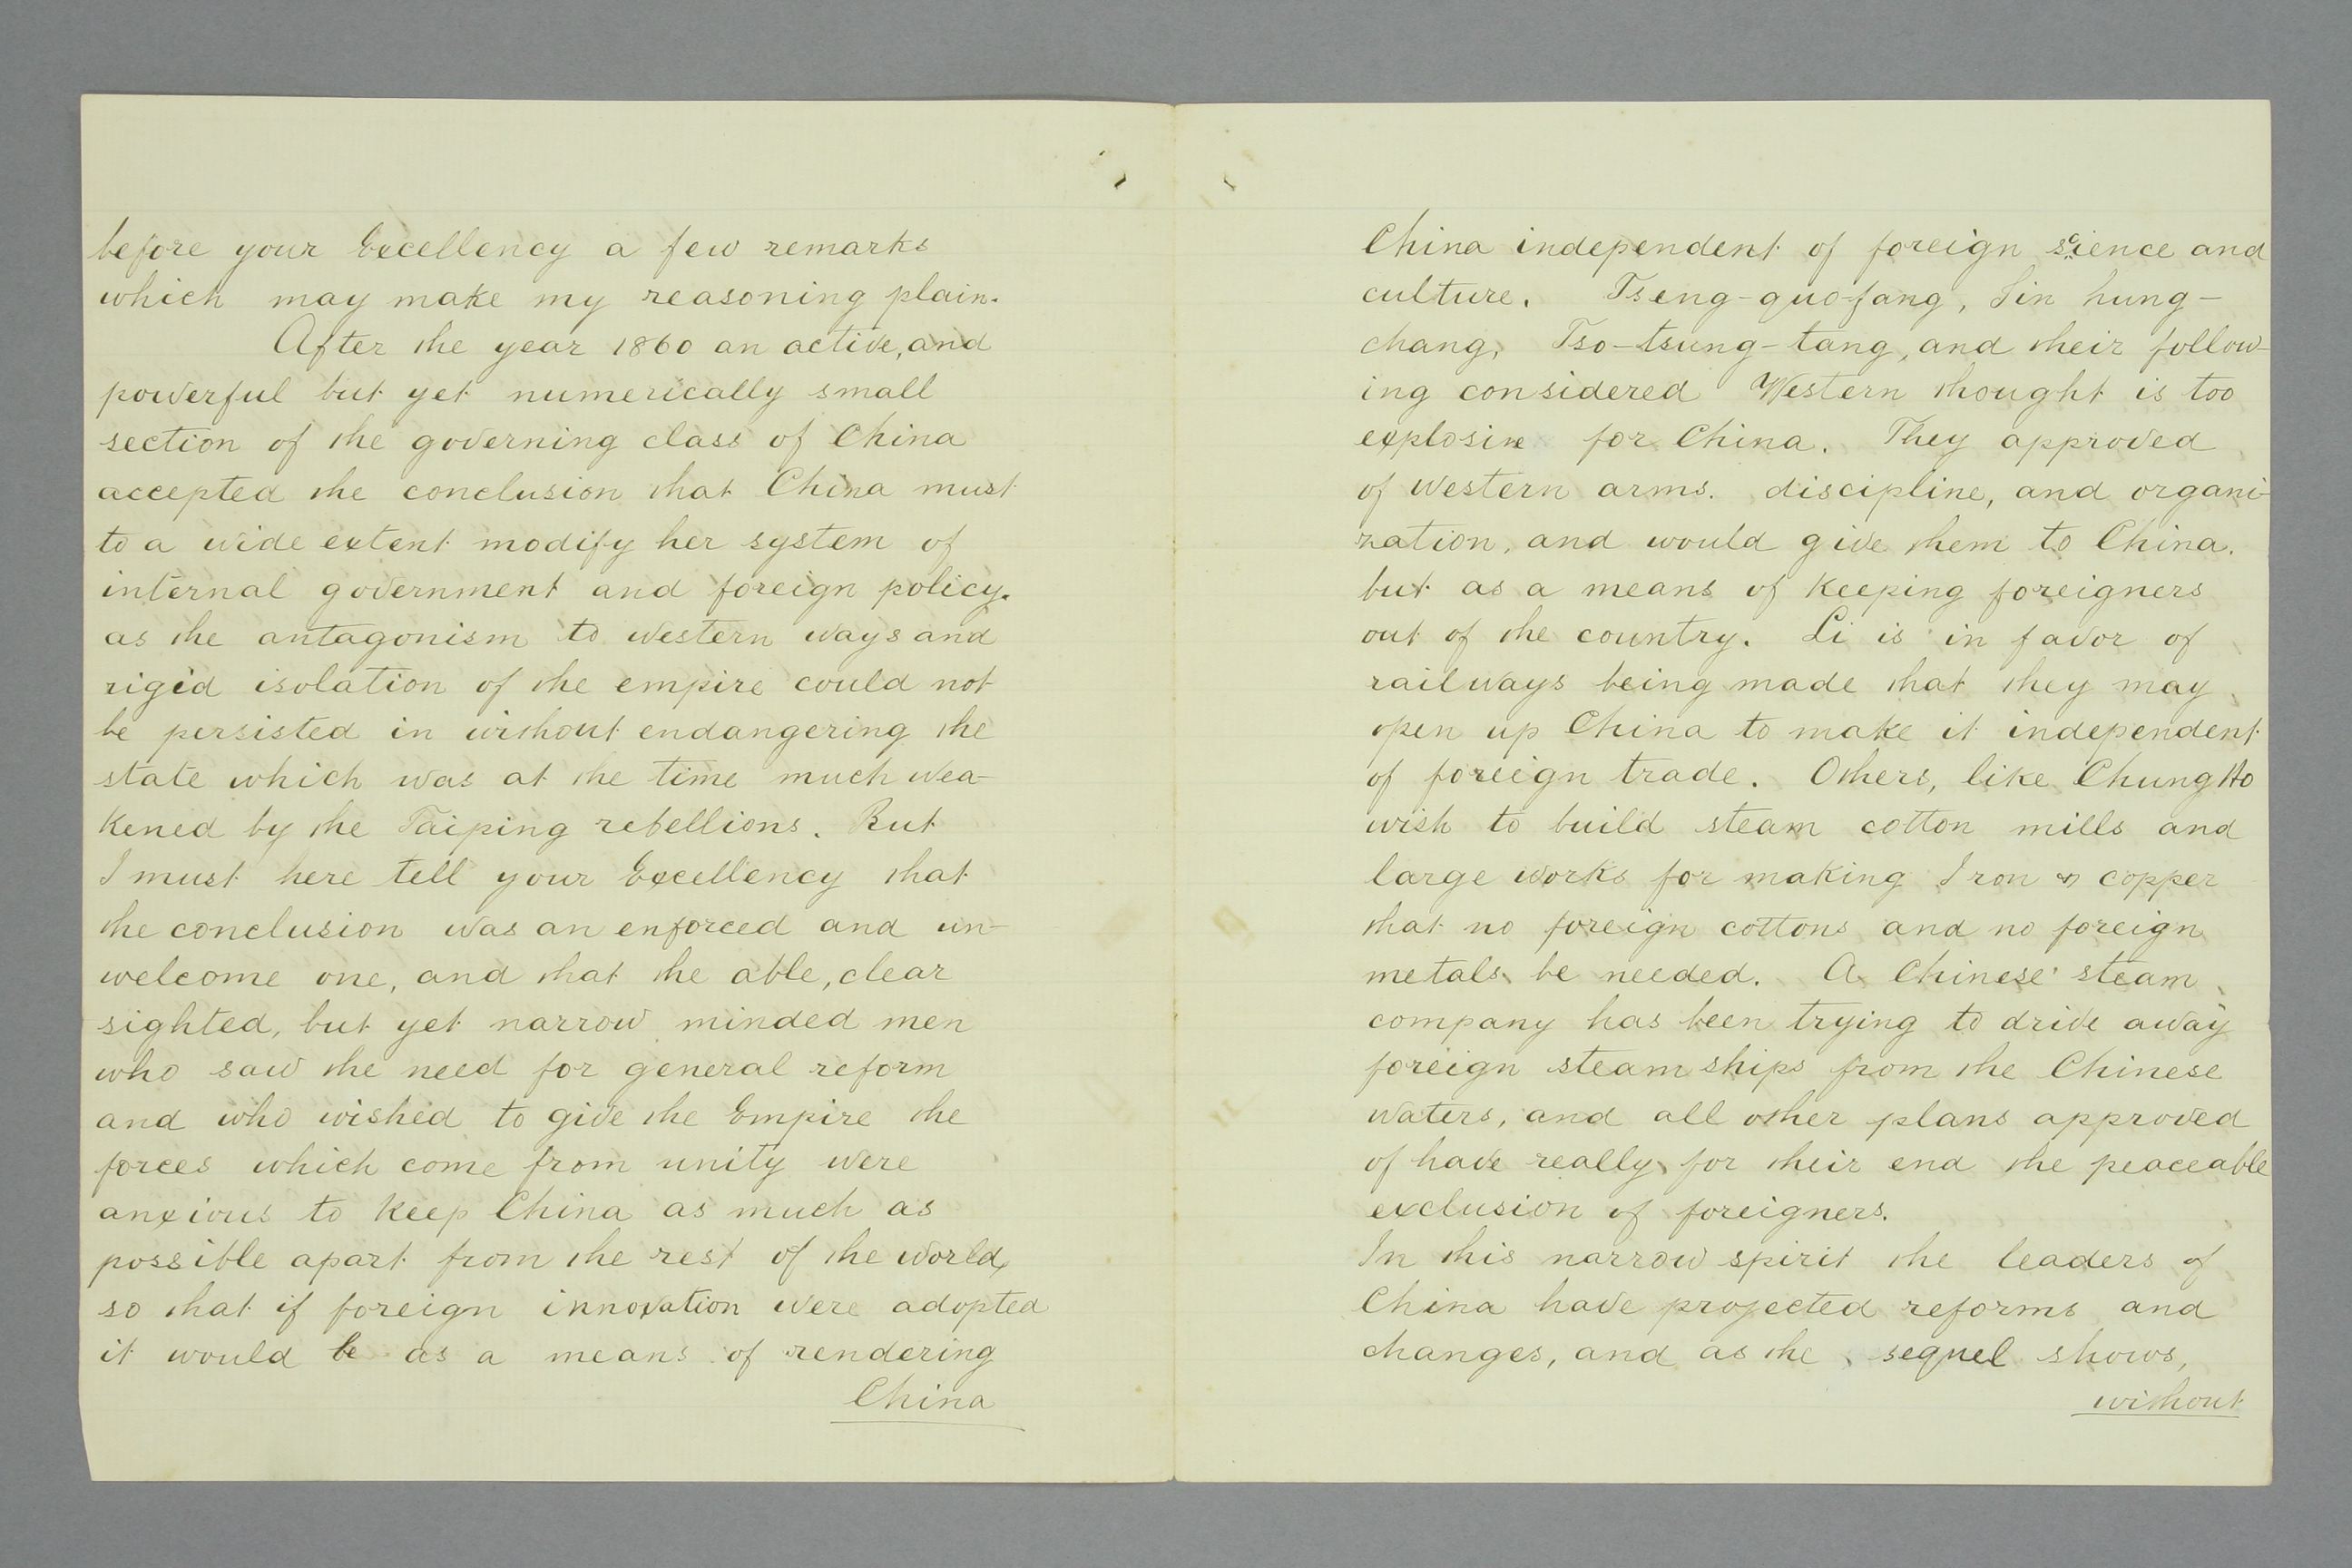 before your Excellency a few remarks
which may make my reasoning plain.
After the year 1860 an active, and
powerful but yet numerically small
section of the governing class of China
accepted the conclusion that China must
to a wide extent modify her system of
internal government and foreign policy.
as the antagonism to western ways and
rigid isolation of the empire could not
be persisted in without endangering the
state which was at the time much wea-
kened by the Taiping rebellions. But
I must here tell your Excellency that
the conclusion was an enforced and un-
welcome one, and that the able, clear
sighted, but yet narrow minded men
who saw the need for general reform
and who wished to give the Empire the
forces which come from unity were
anxious to keep China as much as
possible apart from the rest of the world,
so that if foreign innovation were adopted
it would be as a means of rendering
China
China independent of foreign science and
culture. Tseng-quo-fang, Sin hung-
chang, Tso-tsung-tang, and their follow-
ing considered Western thought is too
explosive for China. They approved
of western arms. discipline, and organi-
zation, and would give them to China.
but as a means of keeping foreigners
out of the country. Li is in favor of
railways being made that they may
open up China to make it independent
of foreign trade. Others, like Chung Ho
wish to build steam cotton mills and
large works for making Iron & copper
that no foreign cottons and no foreign
metals be needed. A Chinese steam
company has been trying to drive away
foreign steam ships from the Chinese
waters, and all other plans approved
of have really for their end the peaceable
exclusion of foreigners.
In this narrow spirit the leaders of
China have projected reforms and
changes, and as the sequel shows,
without